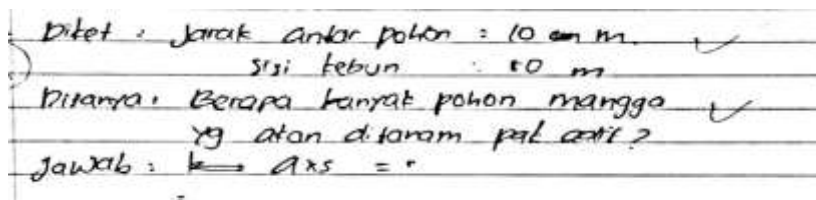 Diket : Jarak antar pohon : 10 m.
sisi kebun : 80 m
Ditanya : Berapa banyak pohon mangga
yg akan ditanam pak
Jawab : a x s =